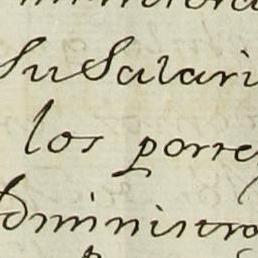 Su Salari
los porre
dminnistra